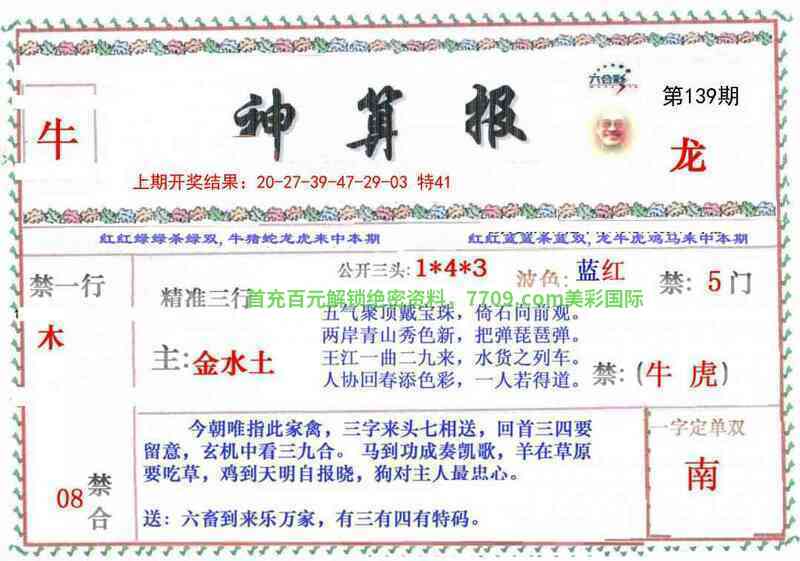 六合彩
神算报
第139期
牛
龙
上期开奖结果：20-27-39-47-29-03 特41
红红绿绿条绿双, 牛猪蛇龙虎来中本期
红红蓝蓝条蓝双, 龙牛虎鸡马来中本期
禁一行
木
精准三行
主:金水土
公开三头: 1*4*3
波色: 蓝红
禁: 5门
首充百元解锁绝密资料。7709.com美彩国际
五气聚顶戴宝珠，倚石向前观。
两岸青山秀色新，把弹琵琶弹。
王江一曲二九来，水货之列车。
人协回春添色彩，一人若得道。
禁:(牛 虎)
08
禁合
今朝唯指此家禽，三字来头七相送，回首三四要
留意，玄机中看三九合。 马到功成奏凯歌，羊在草原
要吃草，鸡到天明自报晓，狗对主人最忠心。
送：六畜到来乐万家，有三有四有特码。
一字定单双
南